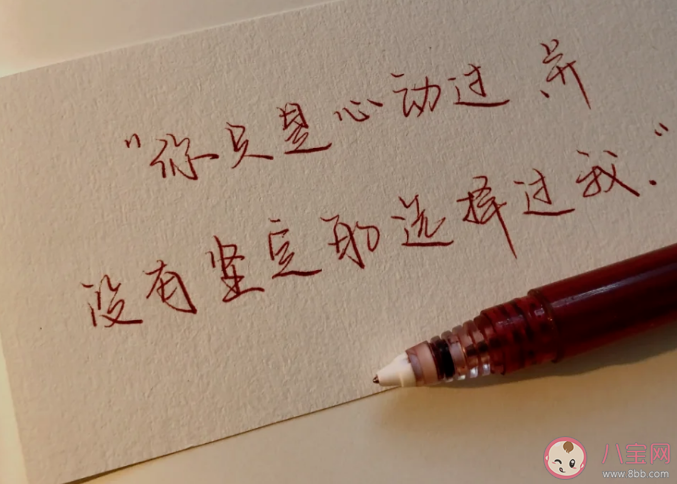 "你只是心动过 并
没有坚定的选择过我."
八宝网
www.8bb.com